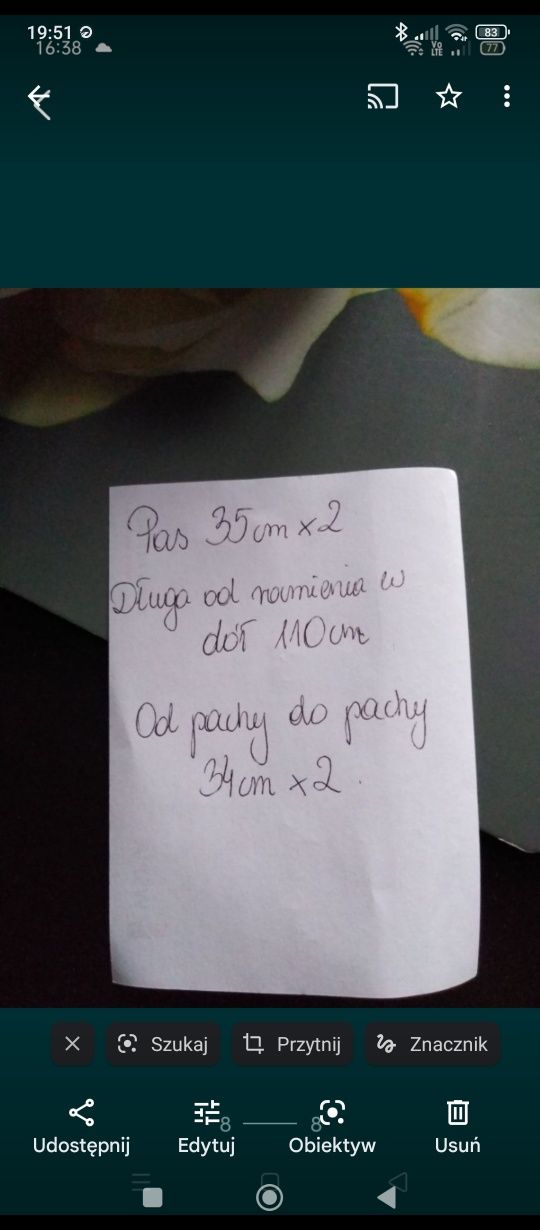 19:51
83
16:38
Vo
LTE
77
Pas 35cm x2
Długa od ramienia w
dół 110cm
Od pachy do pachy
34cm x2.
Szukaj
Przytnij
Znacznik
8
8
Udostępnij
Edytuj
Obiektyw
Usuń